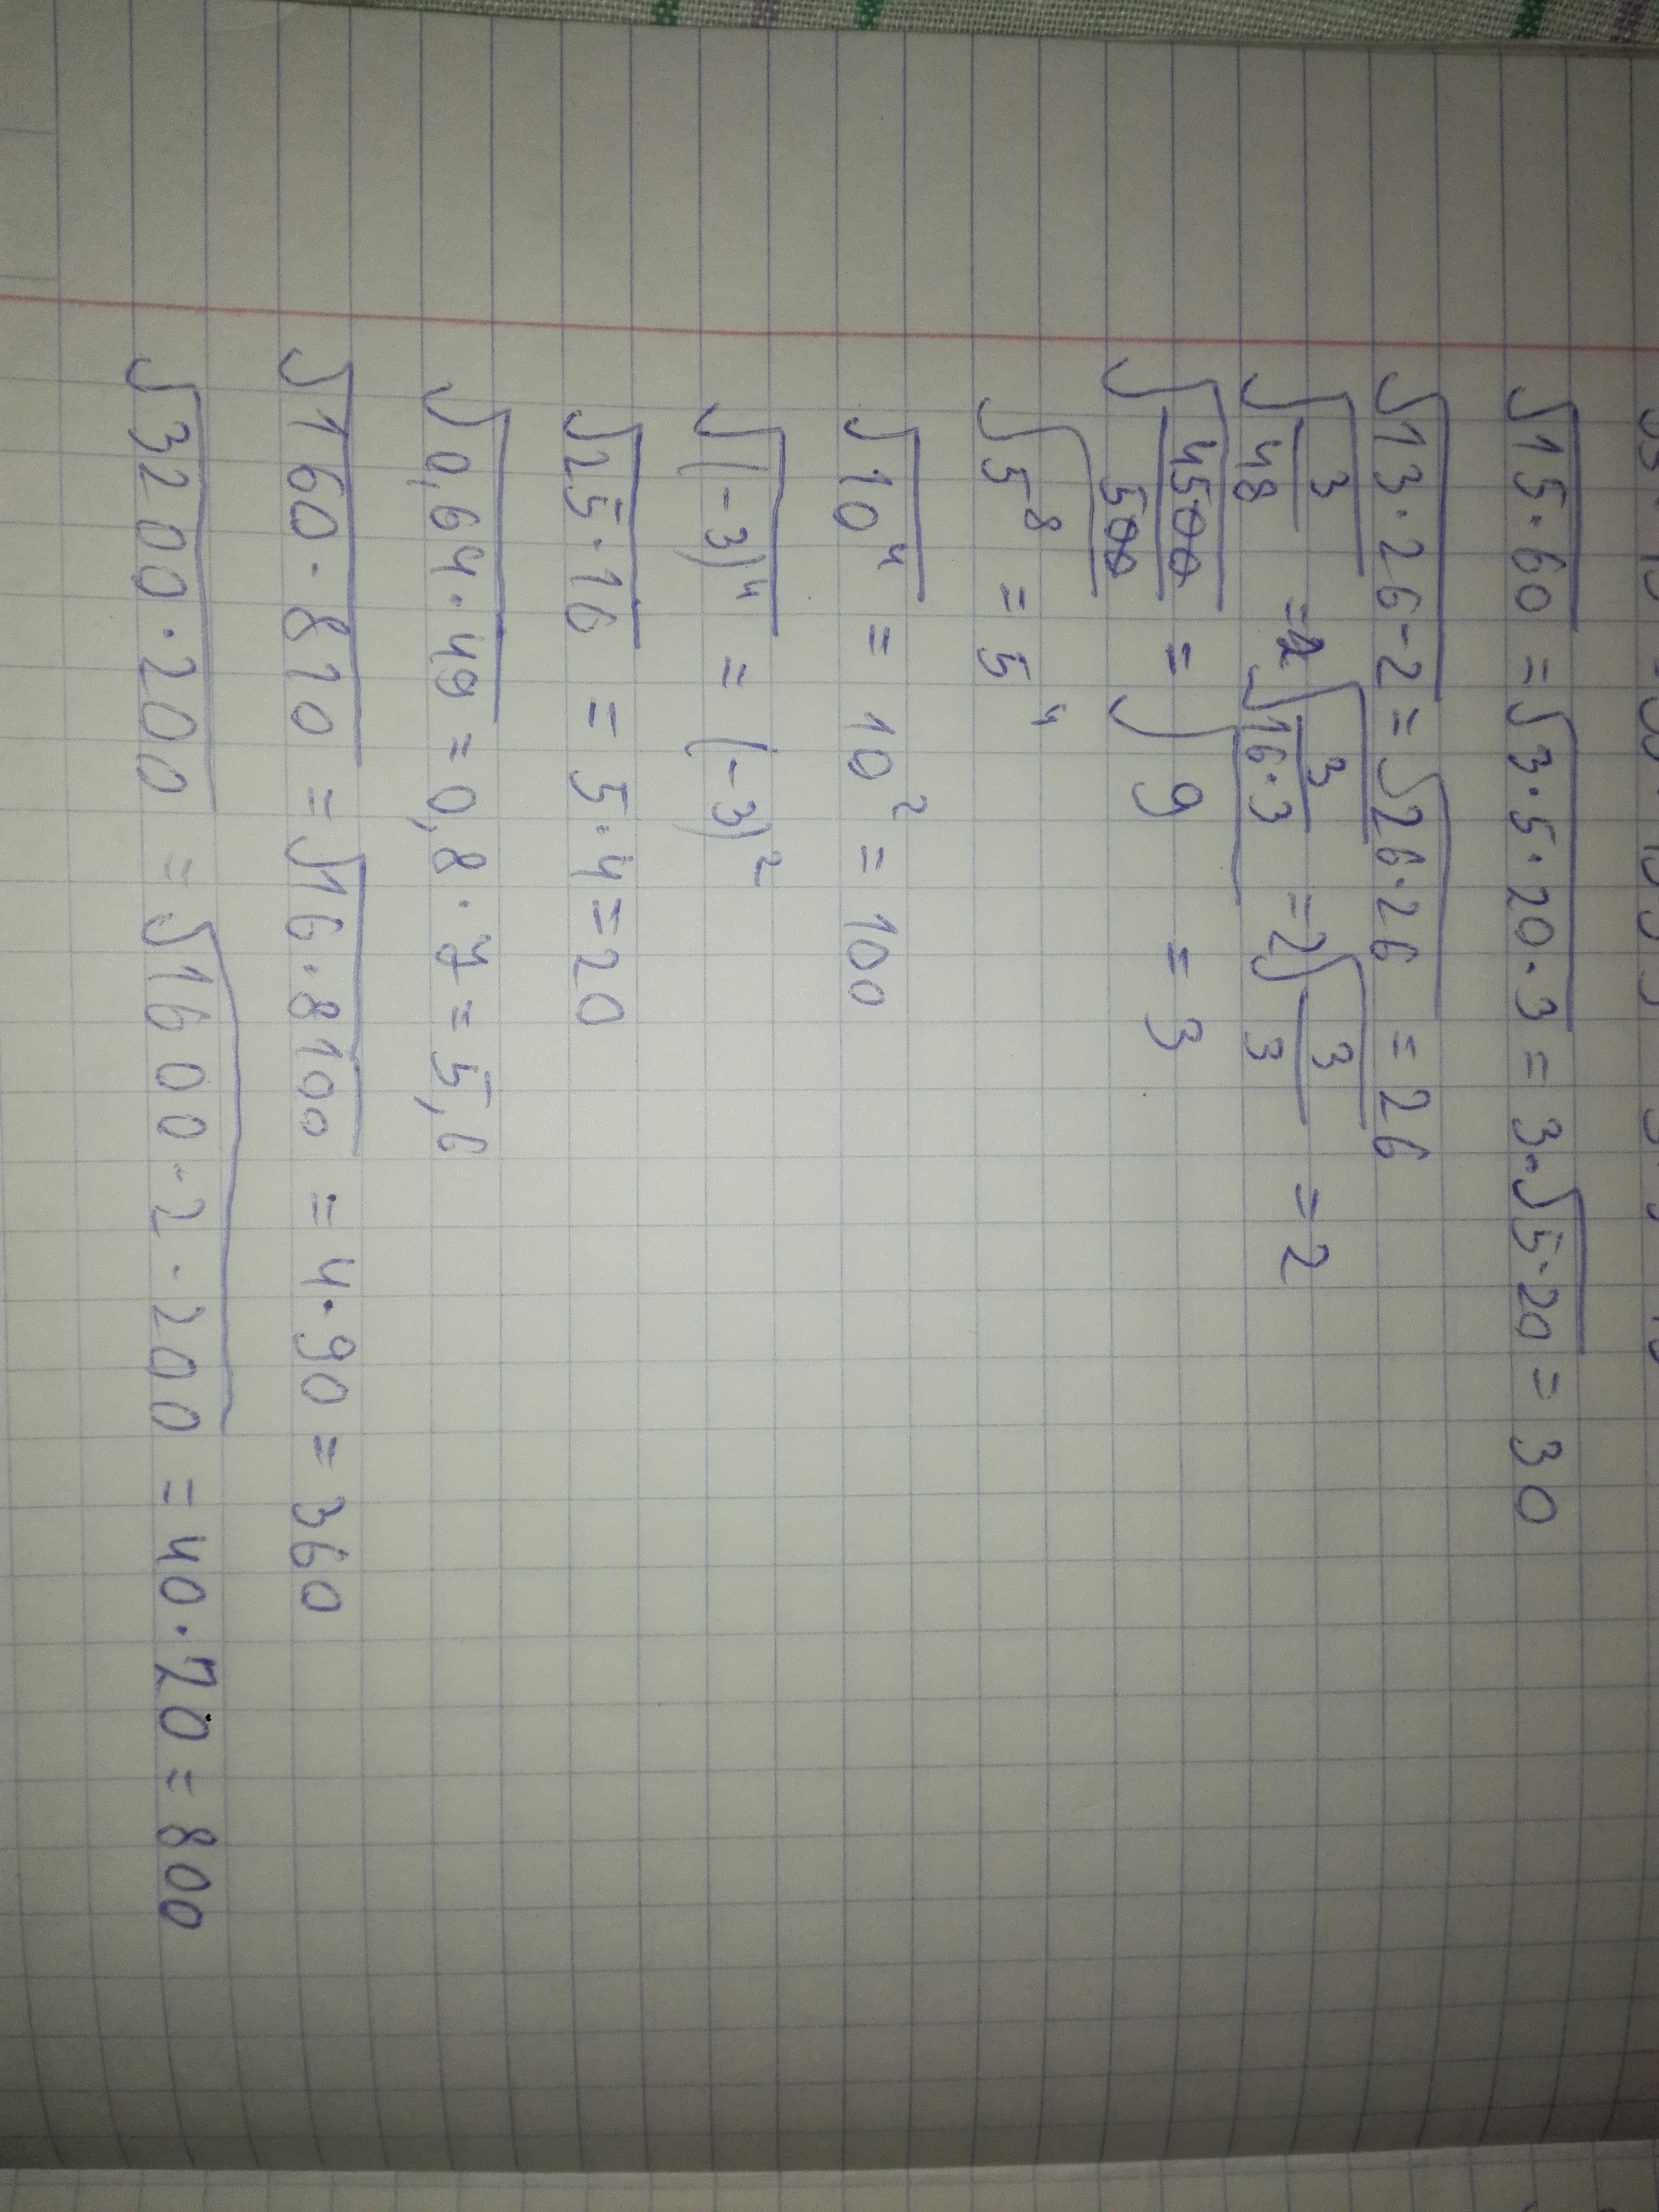 √15·60 = √3·5·20·3 = 3·√5·20 = 30
√13·26·2 = √26·26 = 26
√3/48 = √3/16·3 = 2√3/3 = 2
√4500/500 = √9 = 3
√5⁸ = 5⁴
√10⁴ = 10² = 100
√(-3)⁴ = (-3)²
√25·16 = 5·4 = 20
√0,64·49 = 0,8·7 = 5,6
√160·810 = √16·8100 = 4·90 = 360
√3200·200 = √1600·2·200 = 40·20 = 800